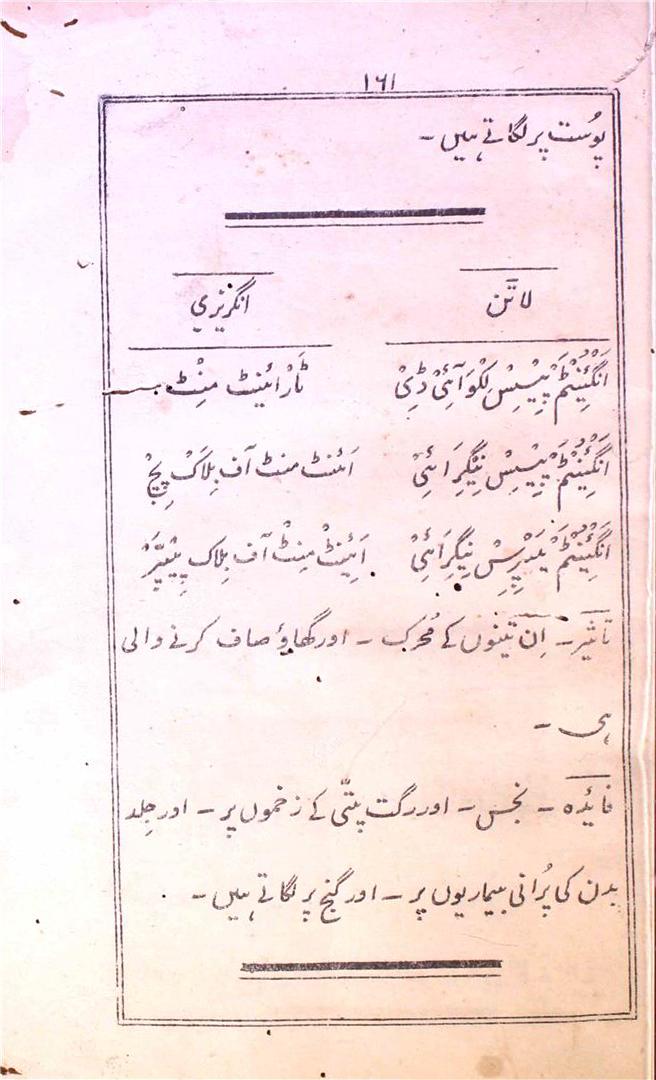 ۱۶۱
پوُست پر لگاتے ہیں ـ
لاتَن
انگریزي
اَنْگُئِنْٹَمْ پِیْسِسْ لِکْوِ آئِیْ ڈِیْ
ٹَارْ ائینٹ مِنْٹ
اَنْگُئِنْٹَمْ پِیْسِسْ نِیْگِرِ ائِیْ
اَئنٹ منٹ آف بِلاَکْ پِچْ
اَنْگُئِنْٹَمْ نِیْگِرَائِیْ
اَئِنٹْ مِنْٹْ آف بِلاک پِیْپَرْ
تاثیر ـ اِن تینوں کے مُحرک ـ اور گھاوٗ صاف کرنے والی
ہی ـ
فائِدہ ـ نجس ـ اور رگت پِتّی کے زخموں پر ـ اور جِلد
بدن کی پُرانی بیماریوں پر ـ اور گنج پر لگاتے ہیں ـ